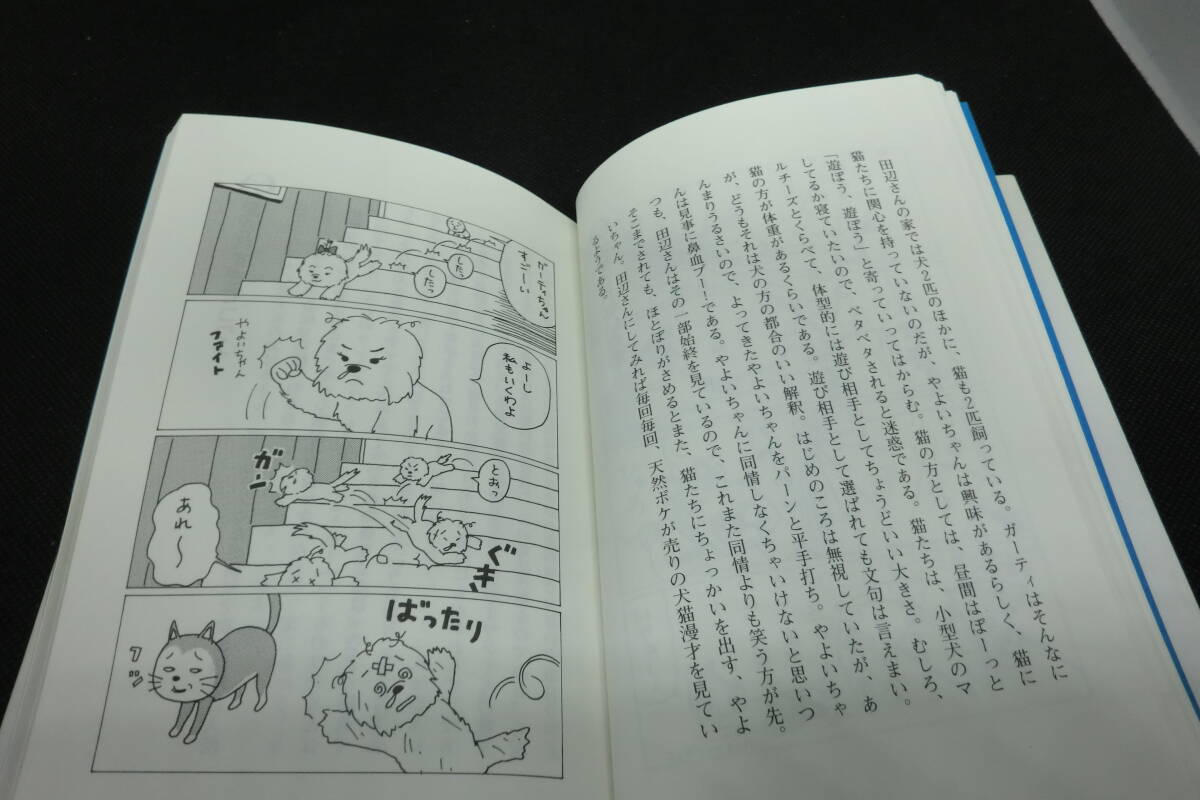 田辺さんの家では犬2匹のほかに、猫も2匹飼っている。ガーティはそんなに
猫たちに関心を持っていないのだが、やよいちゃんは興味があるらしく、猫に
「遊ぼう、遊ぼう」と寄っていってはからむ。猫の方としては、昼間はぼーっと
してるか寝ていたいので、ベタベタされると迷惑である。猫たちは、小型犬のマ
ルチーズとくらべて、体型的には遊び相手としてちょうどいい大きさ。むしろ、
猫の方が体重があるくらいである。遊び相手として選ばれても文句は言えまい。
が、どうもそれは犬の方の都合のいい解釈。はじめのころは無視していたが、あ
んまりうるさいので、よってきたやよいちゃんをパーンと平手打ち。やよいちゃ
んは見事に鼻血ブー！である。やよいちゃんに同情しなくちゃいけないと思いつ
つも、田辺さんはその一部始終を見ているので、これまた同情よりも笑う方が先。
そこまでされても、ほとぼりがさめるとまた、猫たちにちょっかいを出す、やよ
いちゃん。田辺さんにしてみれば毎回毎回、天然ボケが売りの犬猫漫才を見てい
るようである。
ガーティちゃん
すごーい
したっ
したっ
よーし
私もいくわよ
やよいちゃん
ファイト
とおっ
ガンー
ぐき
あれ〜
ばったり
フッ